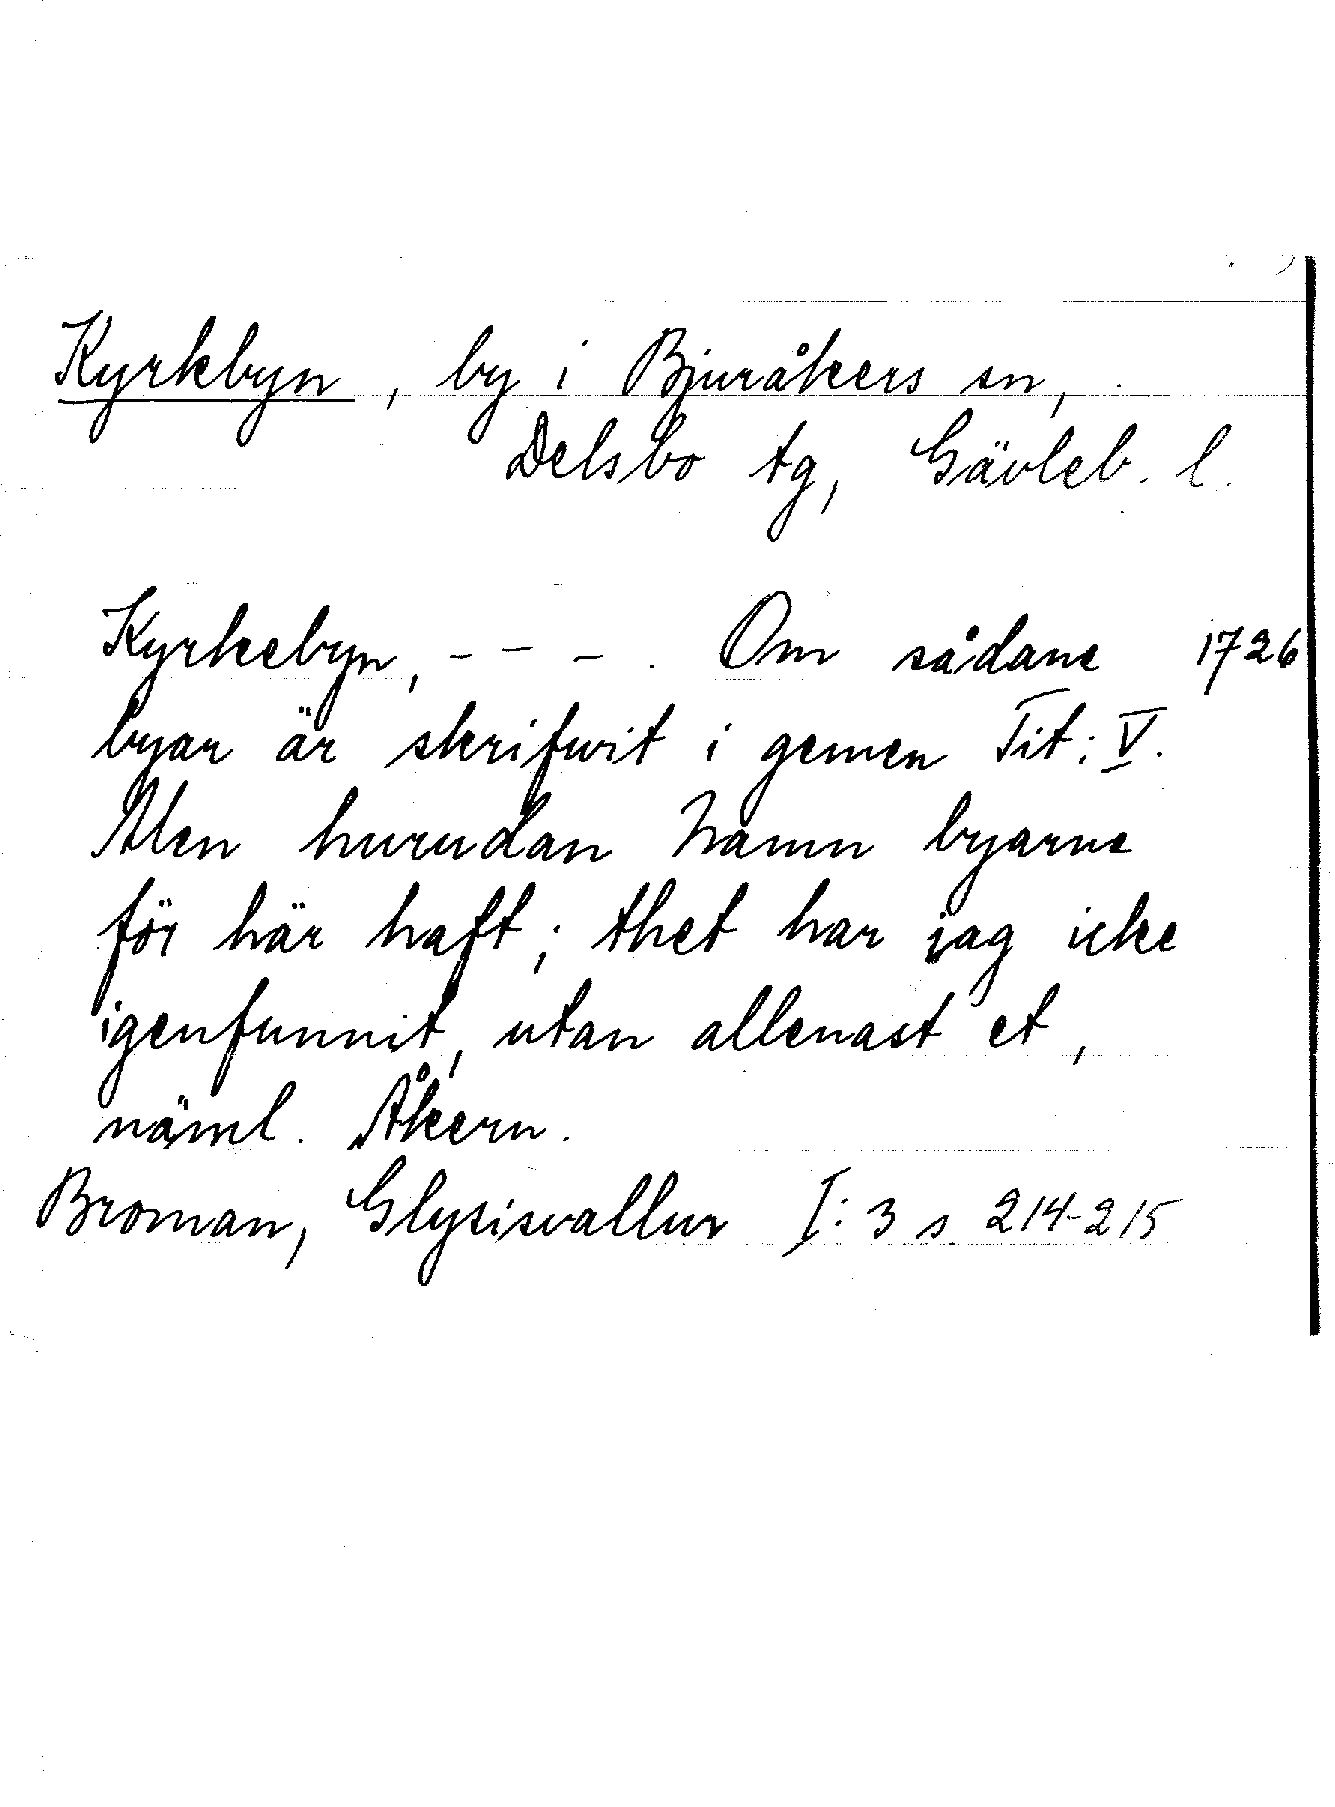 Kyrkbyn, by i Bjuråkers sn,
Delsbo tg, Gävleb. l.
Kyrkebyn, - - - . Om sådane 1726
byar är skrifwit i gemen Tit: V.
Men hurudan Namn byarne
för här haft; thet har jag icke
igenfunnit, utan allenast et,
näml. Åkern.
Broman, Glysisvallur I: 3 s. 214-215